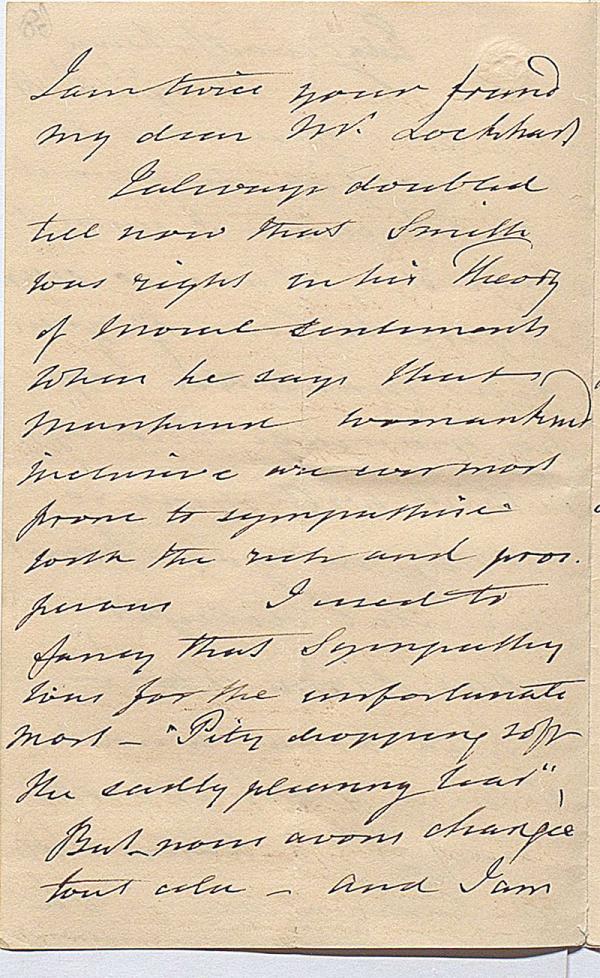 I am twice your friend
my dear Mr. Lockhart
I always doubted
till now that Smith
was right in his Theory
of Moral Sentiments
when he says that
mankind womankind
inclusive are ever most
prone to sympathise
with the rich and pros-
perous I used to
fancy that Sympathy
was for the unfortunate
most — "Pity dropping soft
the sadly pleasing tear",
But nous avons changée
tout cela — and I am